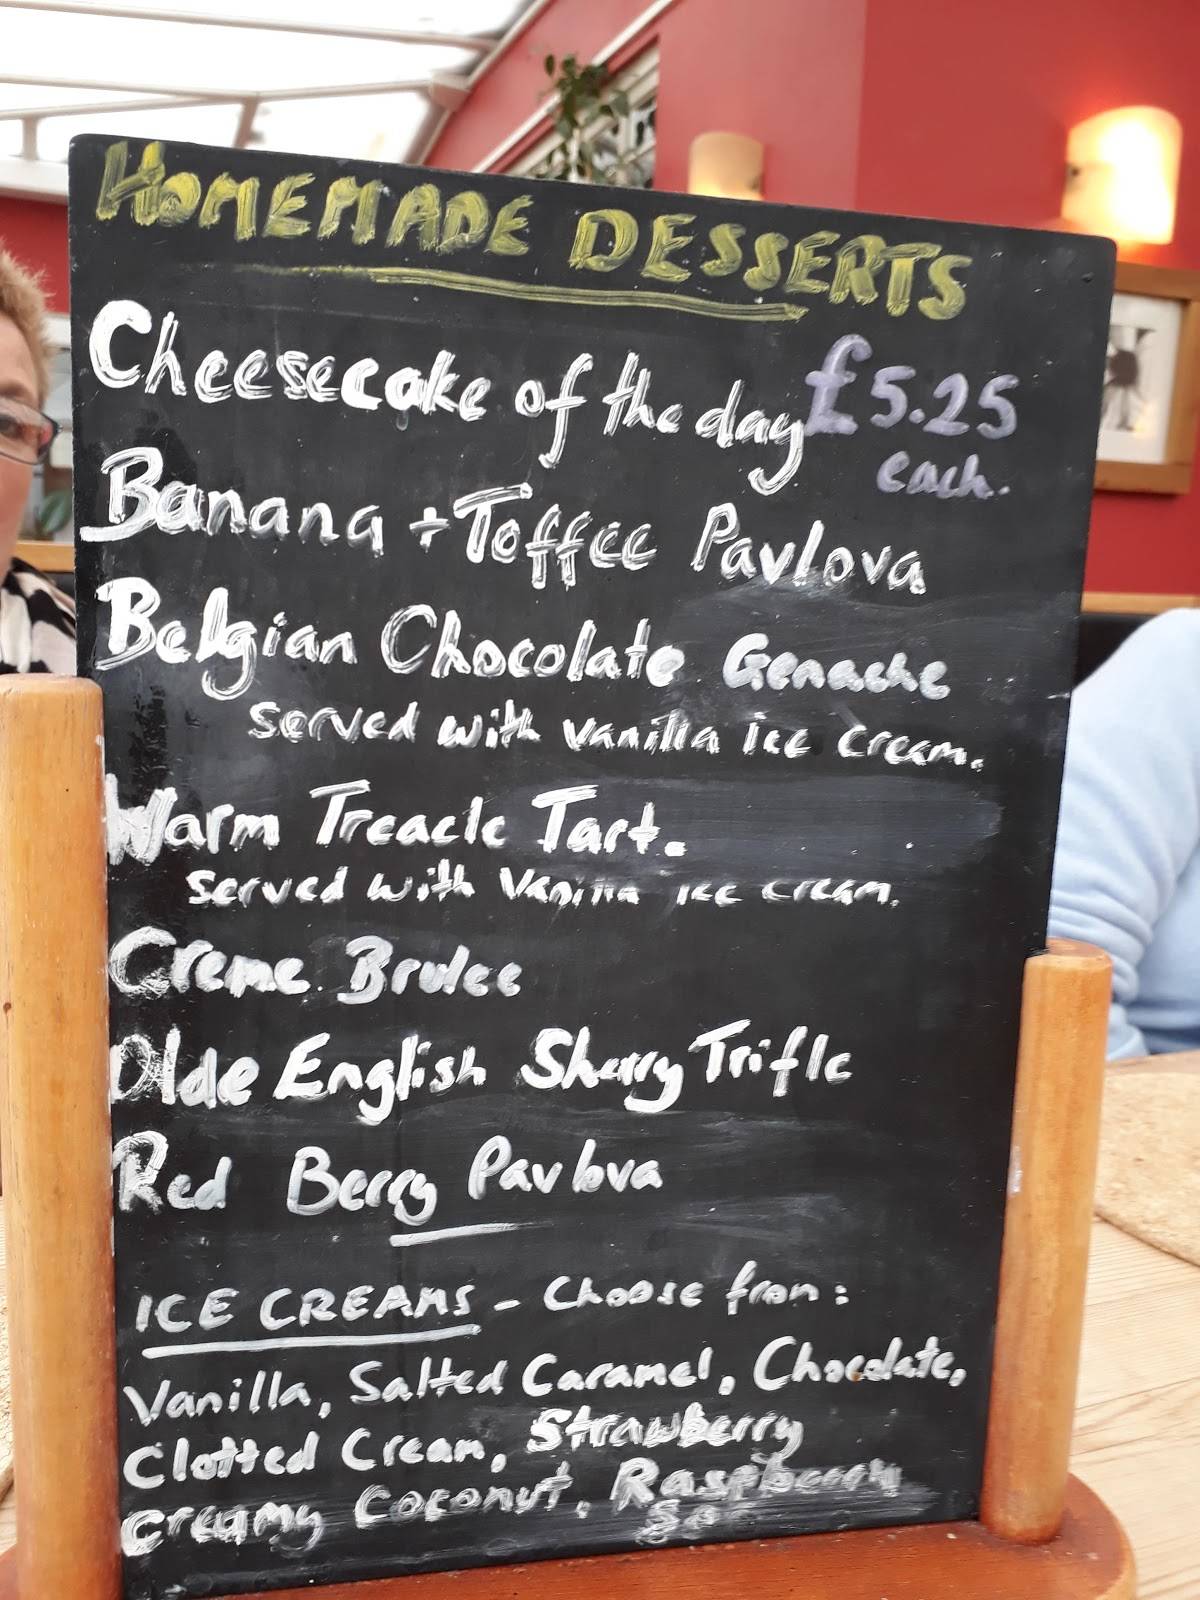 HOMEMADE DESSERTS
Cheesecake of the day £5.25
each.
Banana + Toffee Pavlova
Belgian Chocolate Genache
served with vanilla ice cream.
Warm Treacle Tart.
served with Vanilla ice cream.
Creme Brulee
Olde English Sherry Trifle
Red Berry Pavlova
ICE CREAMS - Choose from:
Vanilla, Salted Caramel, Chocolate,
Clotted Cream, Strawberry
Creamy Coconut, Raspberry